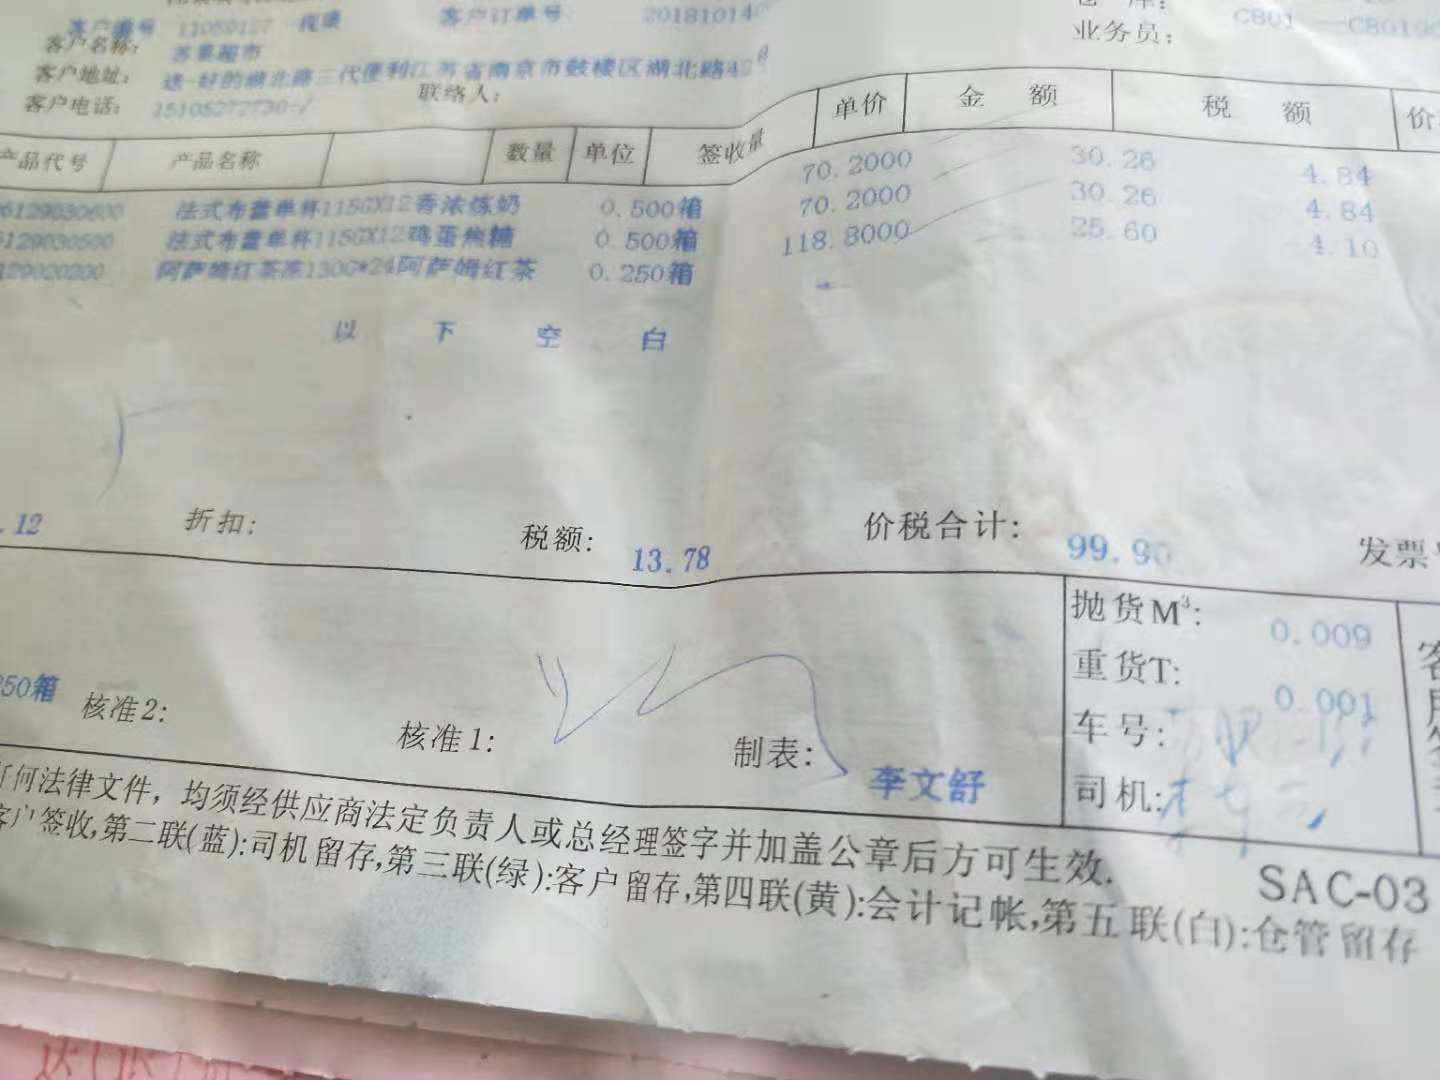 客户编号 11059127 客户订单号: 201810140
客户名称: 苏果超市 业务员:
客户地址: 送-好的湖北路三代便利江苏省南京市鼓楼区湖北路
客户电话: 15105272730-/ 联络人:
产品代号 产品名称 数量 单位 签收量 单价 金额 税额
法式布蕾单杯115GX12香浓炼奶 0.500箱 70.2000 30.26 4.84
法式布蕾单杯115GX12鸡蛋焦糖 0.500箱 70.2000 30.26 4.84
129020200 阿萨姆红茶冻130G*24阿萨姆红茶 0.250箱 118.8000 25.60 4.10
以下空白
.12 折扣: 税额: 13.78 价税合计: 99.90 发票
抛货M³: 0.009
重货T: 0.001
50箱 核准2: 核准1: 制表: 李文舒
车号:
司机:
何法律文件，均须经供应商法定负责人或总经理签字并加盖公章后方可生效.
SAC-03
客户签收,第二联(蓝):司机留存,第三联(绿):客户留存,第四联(黄):会计记帐,第五联(白):仓管留存